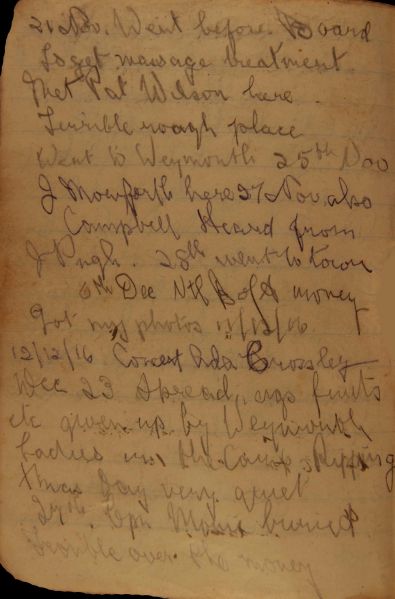 21 Nov. Went before Board
To get massage treatment
Met Pat Wilson here.
Terrible rough place
Went to Weymouth 25th Nov
J Mowforth here 27 Nov. also
Campbell Heard from
J Pugh. 28th went to Town
6th Dec money
Got my photos 11/12/16.
12/12/16 Concert Ada Crossley
Dec 23 Spread, eggs fruits
etc given up by Weymouth
Ladies in the Camp, Ripping
Xmas Day very quiet
27th. buried
Trouble over the money